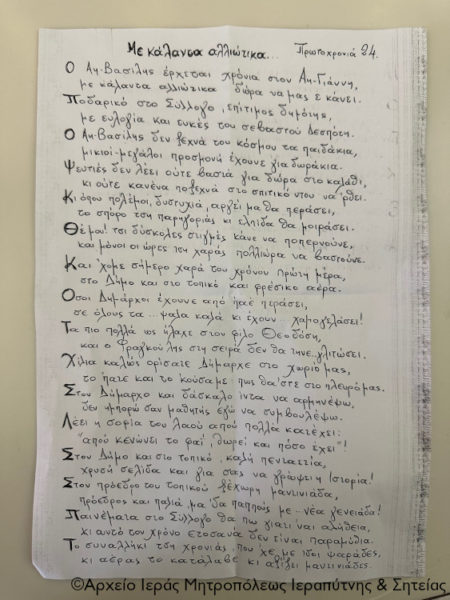 Με κάλαντα αλλιώτικα... Πρωτοχρονιά 24.
Ο Αη-Βασίλης έρχεται χρόνια στον Αη-Γιάννη,
με κάλαντα αλλιώτικα δώρα να μας ε κάνει.
Ποδαρικό στο Σύλλογο, επίτιμος δημότης,
με ευλογία και ευκές του σεβαστού Δεσπότη.
Ο Αη-Βασίλης δεν ξεχνά του κόσμου τα παιδάκια,
μικιοί-μεγάλοι προσμονή έχουνε για δωράκια.
Ψευτιές δεν λέει ούτε βαστά για δώρα στο καλάθι,
κι ούτε κανένα ποξεχνά στο σπιτικό ντου νά 'ρθει.
Κι όπου πολέμοι, δυστυχιά, αργεί μα θα περάσει,
το σπόρο τση παρηγοριάς κι ελπίδα θα μοιράσει.
Θέ μου! τσι δύσκολες στιγμές κάνε να ποπερνούνε,
και μόνοι οι ώρες τση χαράς πολλιώρα να βαστούνε.
Και 'χομε σήμερο χαρά του χρόνου πρώτη μέρα,
στο Δήμο και στο τοπικό και φρέσκο αέρα.
Όσοι Δημάρχοι έχουνε από 'παέ περάσει,
σε όλους τα ...ψαλα καλά κι έχουν... χαμογελάσει!
Τα πιο πολλά ως έλαχε στον φίλο Θεοδόση,
και ο Φραγκούλης στη σειρά δεν θα τηνε...γλιτώσει.
Χίλια καλώς ορίσατε Δήμαρχε στο χωριό μας,
το 'πατε και το 'κούσαμε πως θα 'στε στο πλευρό μας.
Στον Δήμαρχο και δάσκαλο ίντα να αρμηνέψω,
δεν μπορώ σαν μαθητής εγώ να συμβουλέψω.
Λέει η σοφία του λαού απού πολλά κατέχει:
"απού κενώνει το φαΐ, θωρεί και πόσο έχει"!
Στον Δήμο και στο τοπικό, καλή πενταετία,
χρυσή σελίδα και για σας να γράψει η Ιστορία!
Στον πρόεδρο του τοπικού ξέχωρη μαντινιάδα,
πρόεδρος και παλιά, μα 'δα παππούς με - νέα γενειάδα!
Παινέματα στο Σύλλογο θα πω γιατί ναι αλήθεια,
κι αυτό τον χρόνο ετοσανά δεν είναι παραμύθια.
Το συναλλήκι τση χρονιάς που 'χε με ιδοί ψαράδες,
κι αέρας το κατάλαβε κι αξίζει μαντινιάδες.
©Αρχείο Ιεράς Μητροπόλεως Ιεραπύτνης & Σητείας